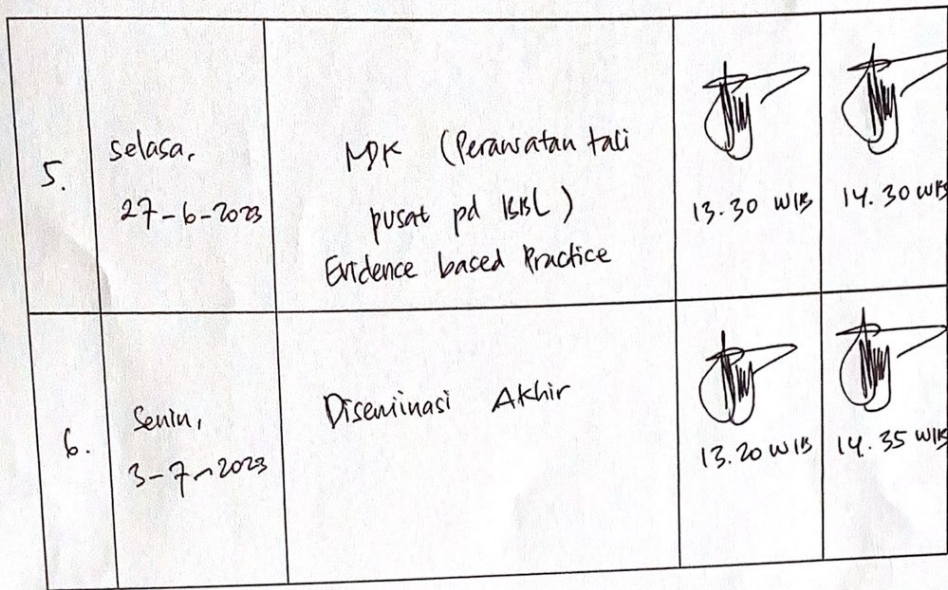 5.
selasa,
27-6-2023
MDK (Perawatan tali
pusat pd BBL)
Evidence based Practice
13.30 WIB
14.30 WIB
6.
Senin,
3-7-2023
Diseminasi Akhir
13.20 WIB
14.35 WIB